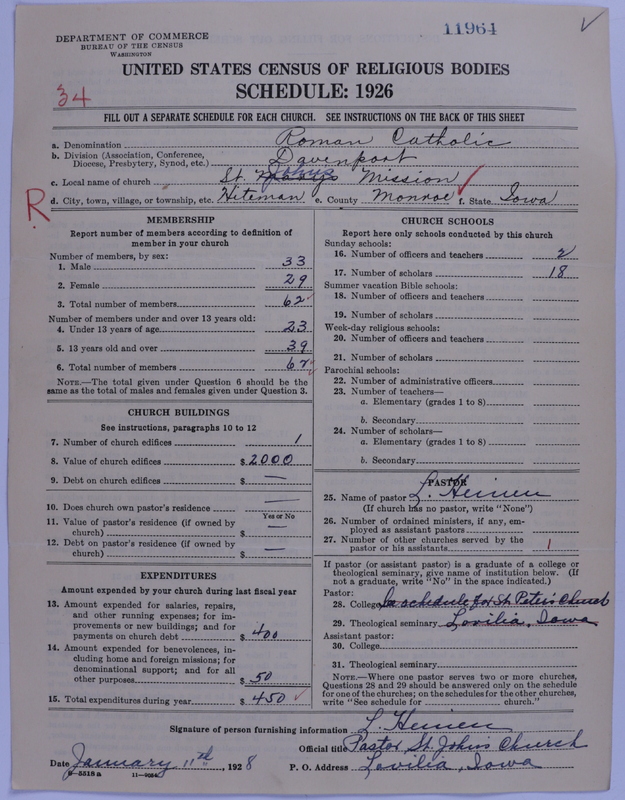 11964
DEPARTMENT OF COMMERCE
BUREAU OF THE CENSUS
WASHINGTON
UNITED STATES CENSUS OF RELIGIOUS BODIES
SCHEDULE: 1926
34
FILL OUT A SEPARATE SCHEDULE FOR EACH CHURCH. SEE INSTRUCTIONS ON THE BACK OF THIS SHEET
a. Denomination Roman Catholic
b. Division (Association, Conference,
Diocese, Presbytery, Synod, etc.) Davenport
c. Local name of church St. Mission
d. City, town, village, or township, etc. Hiteman e. County Monroe f. State Iowa
R
MEMBERSHIP
Report number of members according to definition of
member in your church
Number of members, by sex:
1. Male 33
2. Female 29
3. Total number of members 62
Number of members under and over 13 years old:
4. Under 13 years of age 23
5. 13 years old and over 39
6. Total number of members 62
NOTE.—The total given under Question 6 should be the
same as the total of males and females given under Question 3.
CHURCH BUILDINGS
See instructions, paragraphs 10 to 12
7. Number of church edifices 1
8. Value of church edifices $ 2000
9. Debt on church edifices $ —
10. Does church own pastor's residence —
Yes or No
11. Value of pastor's residence (if owned by
church) $ —
12. Debt on pastor's residence (if owned by
church) $ —
EXPENDITURES
Amount expended by your church during last fiscal year
13. Amount expended for salaries, repairs,
and other running expenses; for im-
provements or new buildings; and for
payments on church debt $ 400
14. Amount expended for benevolences, in-
cluding home and foreign missions; for
denominational support; and for all
other purposes $ 50
15. Total expenditures during year $ 450
CHURCH SCHOOLS
Report here only schools conducted by this church
Sunday schools:
16. Number of officers and teachers 2
17. Number of scholars 18
Summer vacation Bible schools:
18. Number of officers and teachers
19. Number of scholars
Week-day religious schools:
20. Number of officers and teachers
21. Number of scholars
Parochial schools:
22. Number of administrative officers
23. Number of teachers—
a. Elementary (grades 1 to 8)
b. Secondary
24. Number of scholars—
a. Elementary (grades 1 to 8)
b. Secondary
PASTOR
25. Name of pastor L. Heinen
(If church has no pastor, write "None")
26. Number of ordained ministers, if any, em-
ployed as assistant pastors
27. Number of other churches served by the
pastor or his assistants 1
If pastor (or assistant pastor) is a graduate of a college or
theological seminary, give name of institution below. (If
not a graduate, write "No" in the space indicated.)
Pastor:
28. College schedule for St Peter's Church
29. Theological seminary Lovilia, Iowa
Assistant pastor:
30. College
31. Theological seminary
NOTE.—Where one pastor serves two or more churches,
Questions 28 and 29 should be answered only on the schedule
for one of the churches; on the schedules for the other churches,
write "See schedule for church."
Signature of person furnishing information L. Heinen
Official title Pastor St. John's Church
Date January 11th, 1928 P. O. Address Lovilia, Iowa
8—5518 a 11—9024